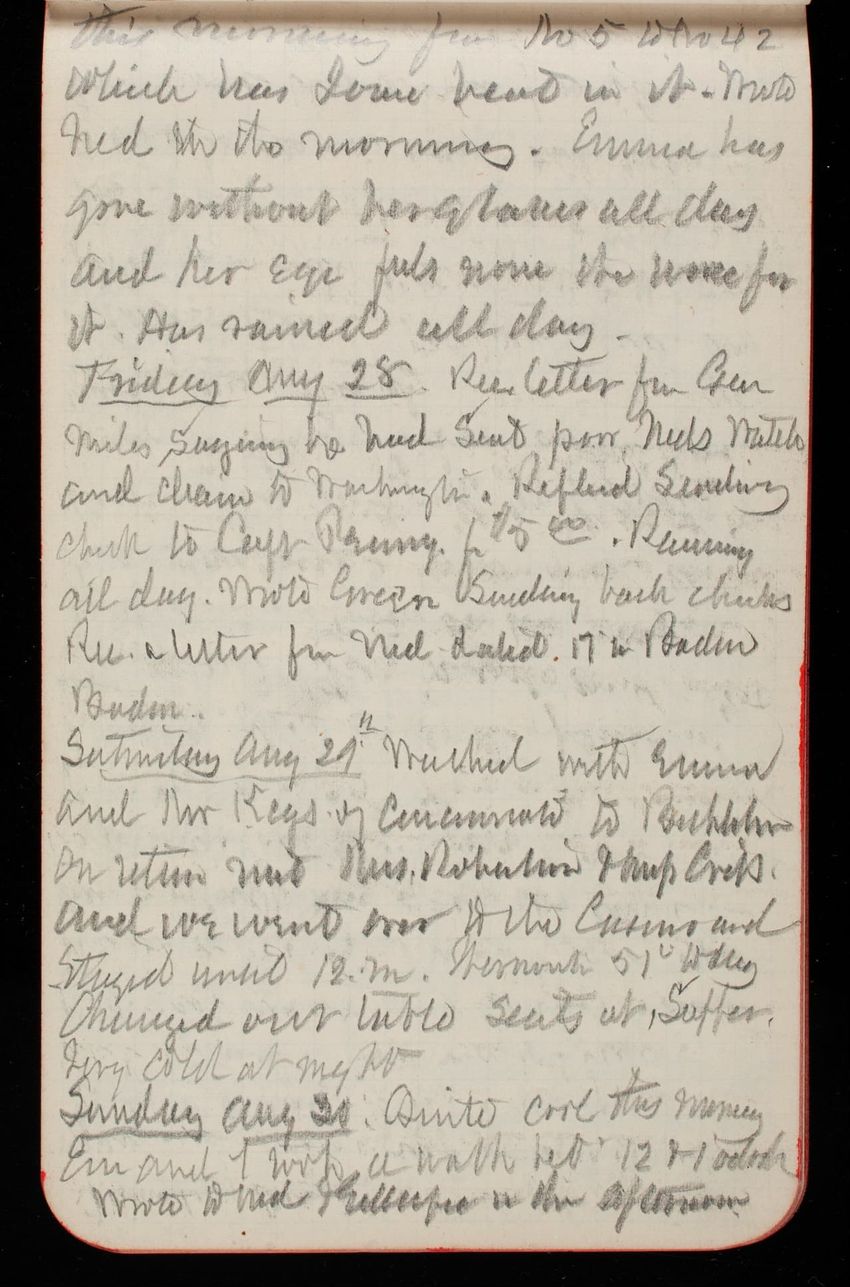 this morning fm No 5 to No 42
which has some heat in it. Wrote
Ned in the morning. Emma has
gone without her glasses all day
and her eye feels none the worse for
it. Has rained all day.
Friday Aug 28. Rec. letter fm Gen
Miles saying he had sent poor Neds watch
and chain to Washington. Replied sending
check to Capt for $5 00. Raining
all day. Wrote sending back checks
Rec. a letter fm Ned dated 17 in Baden
Baden.
Saturday Aug 29th Walked with Emma
and Mr Keys of Cincinnati to
on return met Mrs. Robertson &
and we went over to the Casino and
Stayed until 12. m. 51° today
Changed our table seats at Supper.
Very cold at night
Sunday Aug 30. Quite cool this morning
Em and I took a walk bet 12 & 1 oclock
Wrote to Ned & in the afternoon